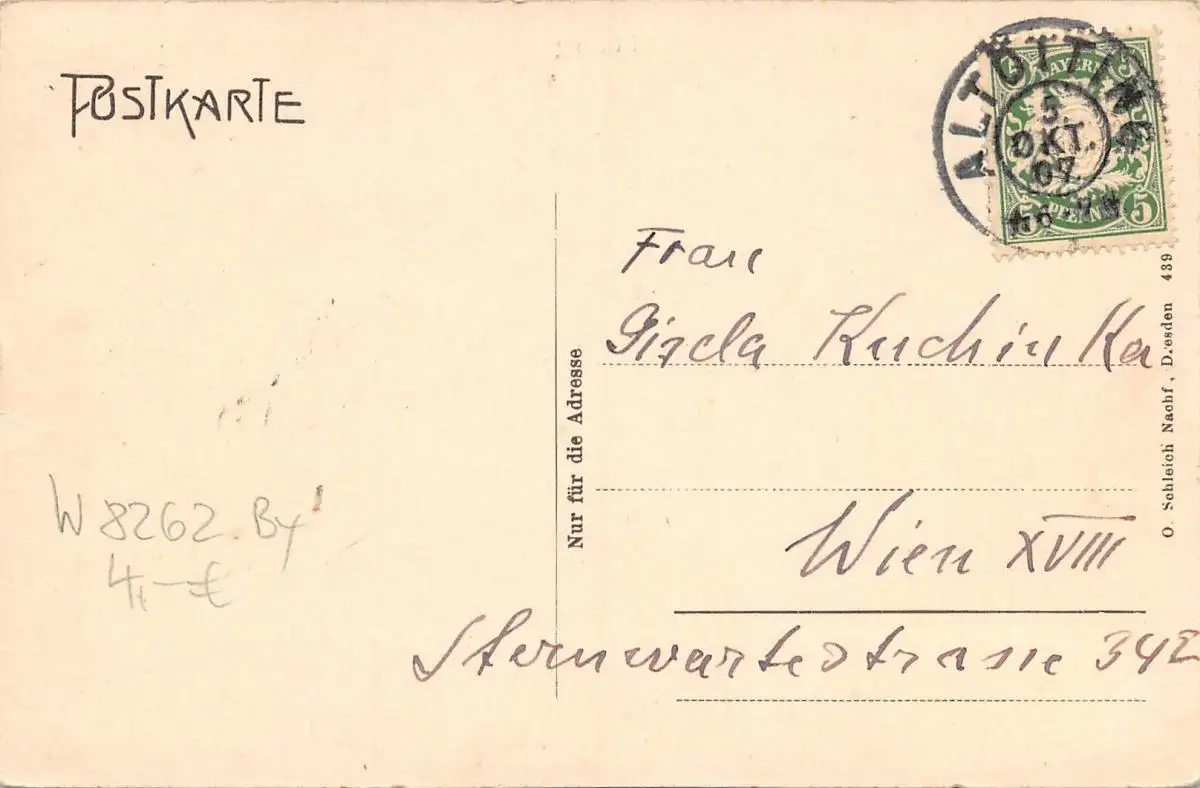 POSTKARTE
ALTÖTTING
5.
OKT.
07.
BAYERN
5 PFENNIG 5
Frau
Gisela Kuchinka
Wien XVIII
Sternwartestrasse 34
Nur für die Adresse
O. Schleich Nachf., Dresden 439
W 8262 By
4,-€